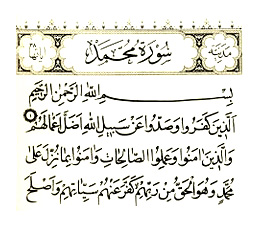 مدنية سورة محمد آياتها ٣٨
بسم الله الرحمن الرحيم
الذين كفروا وصدوا عن سبيل الله اضل اعمالهم
والذين امنوا وعملوا الصالحات وامنوا بما نزل على
محمد وهو الحق من ربهم كفر عنهم سيئاتهم واصلح